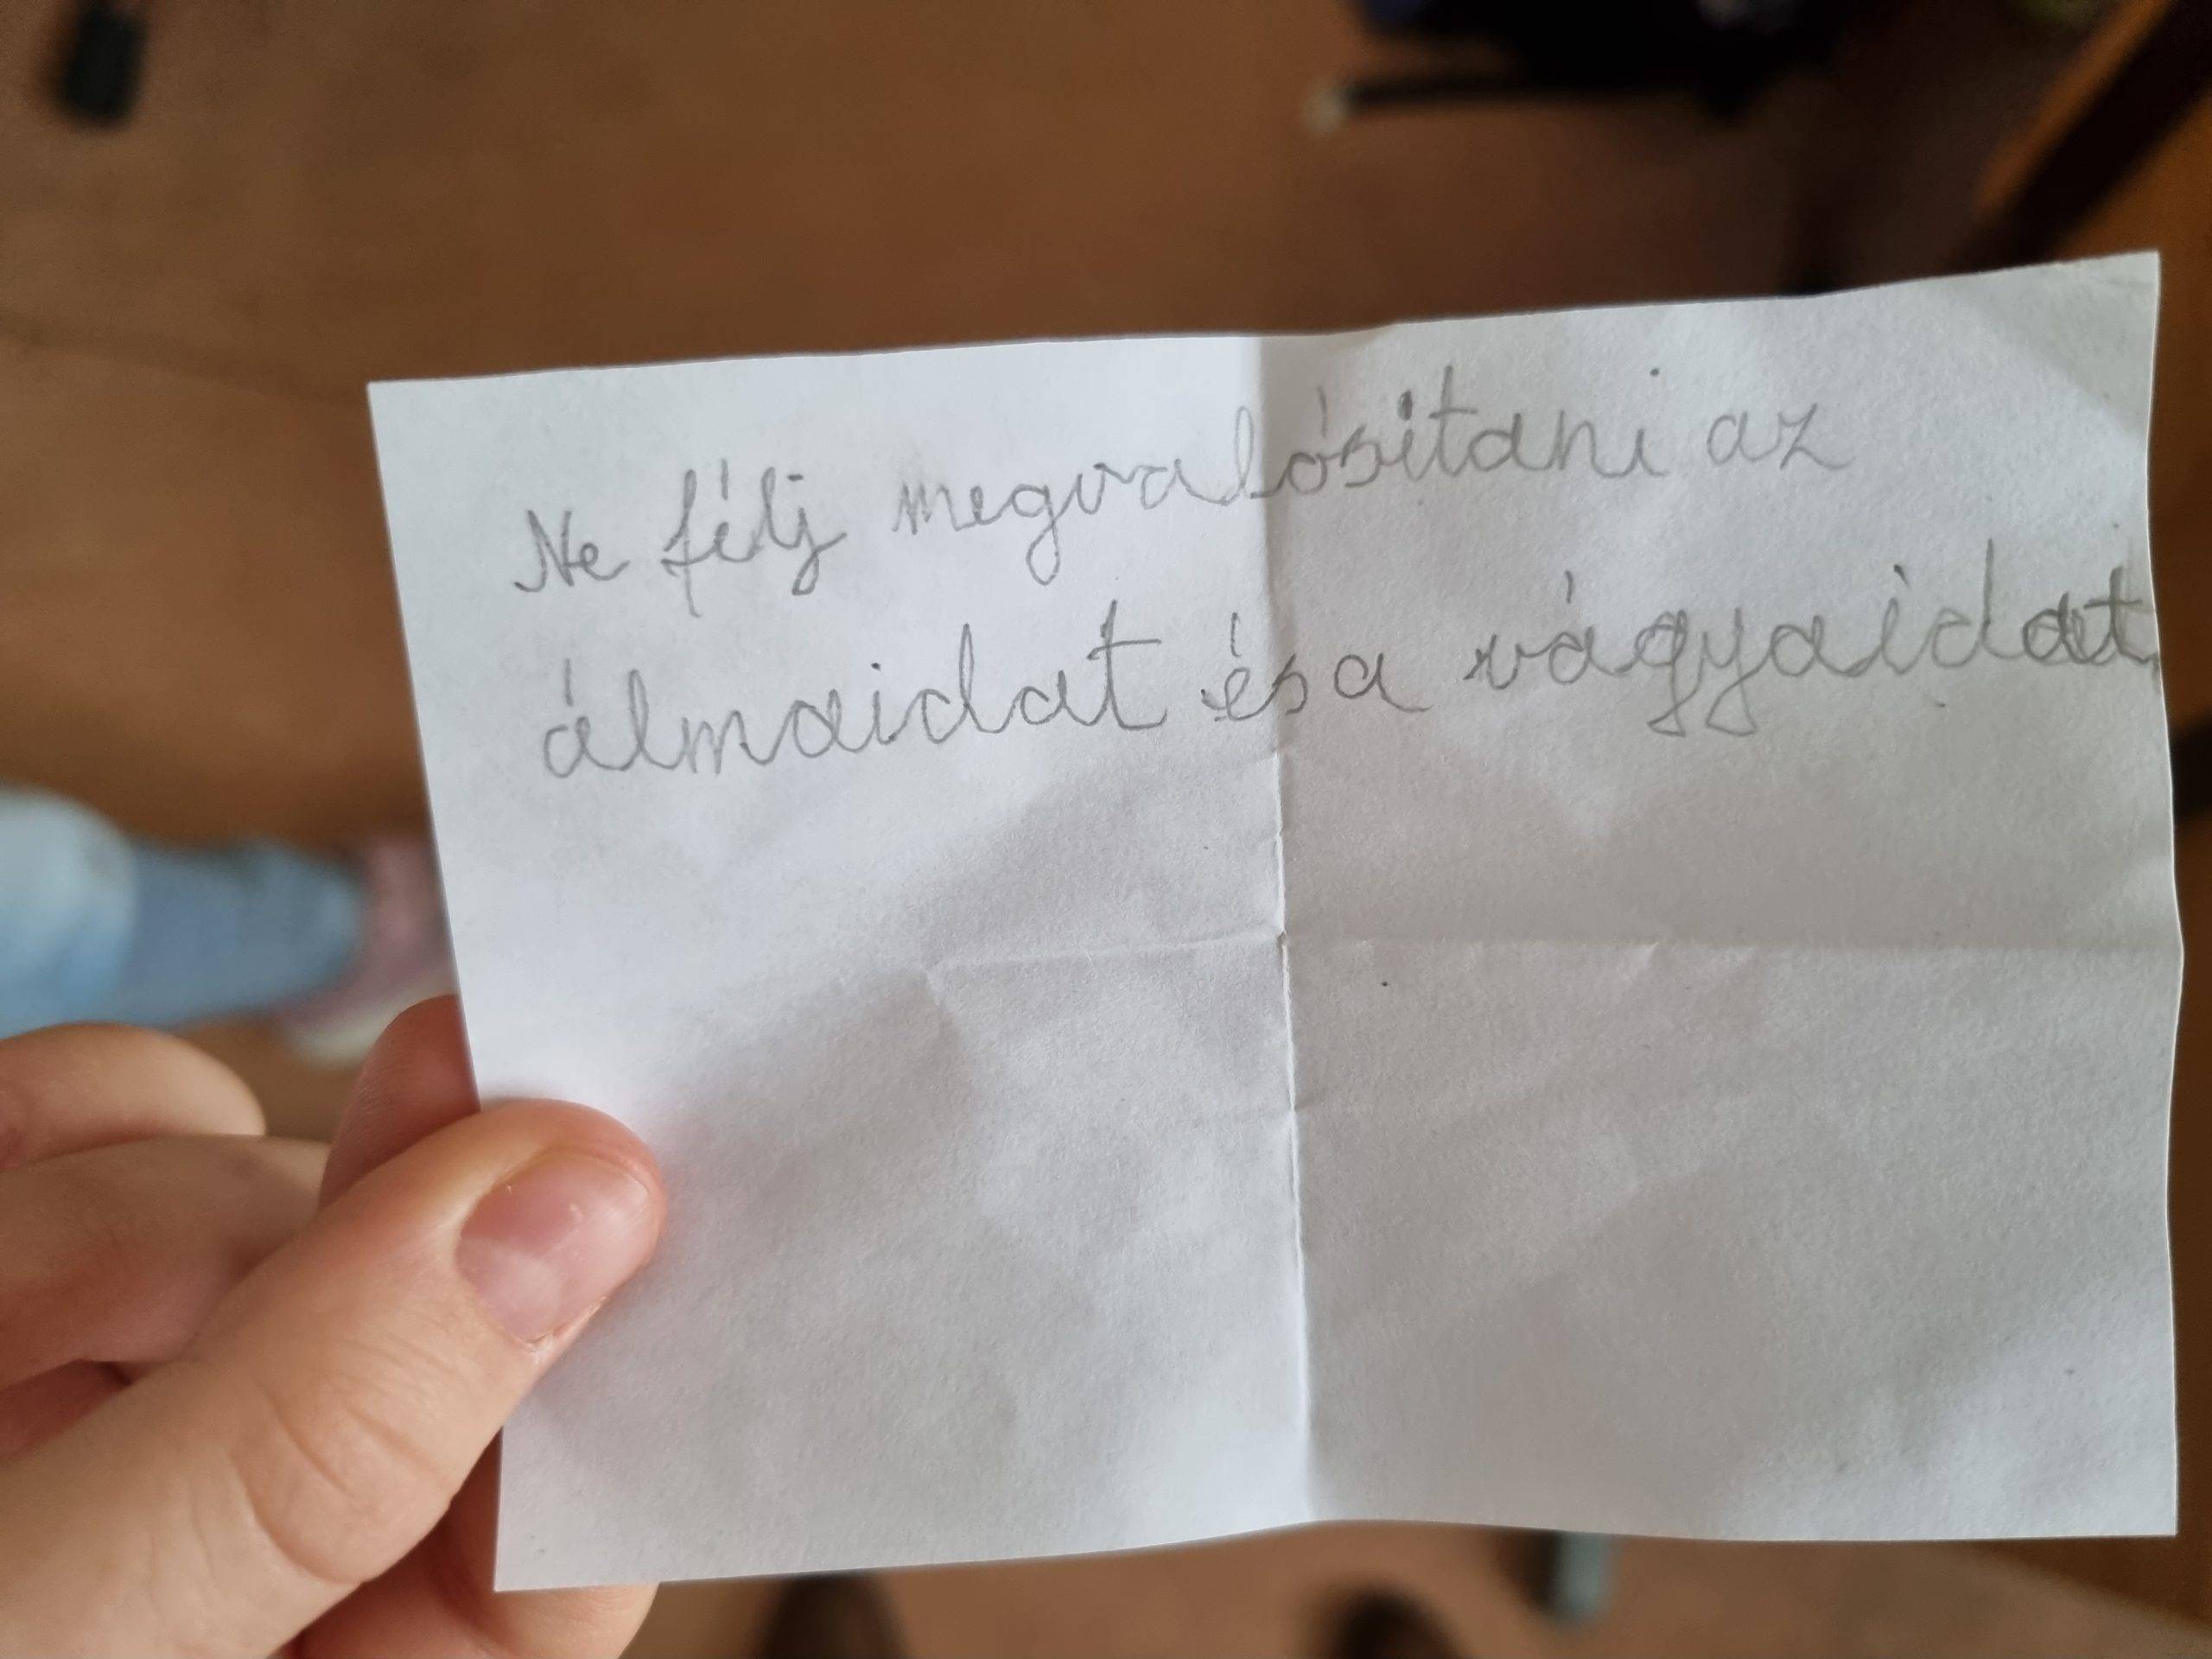 Ne félj megvalósitani az
álmaidat és a vágyaidat.